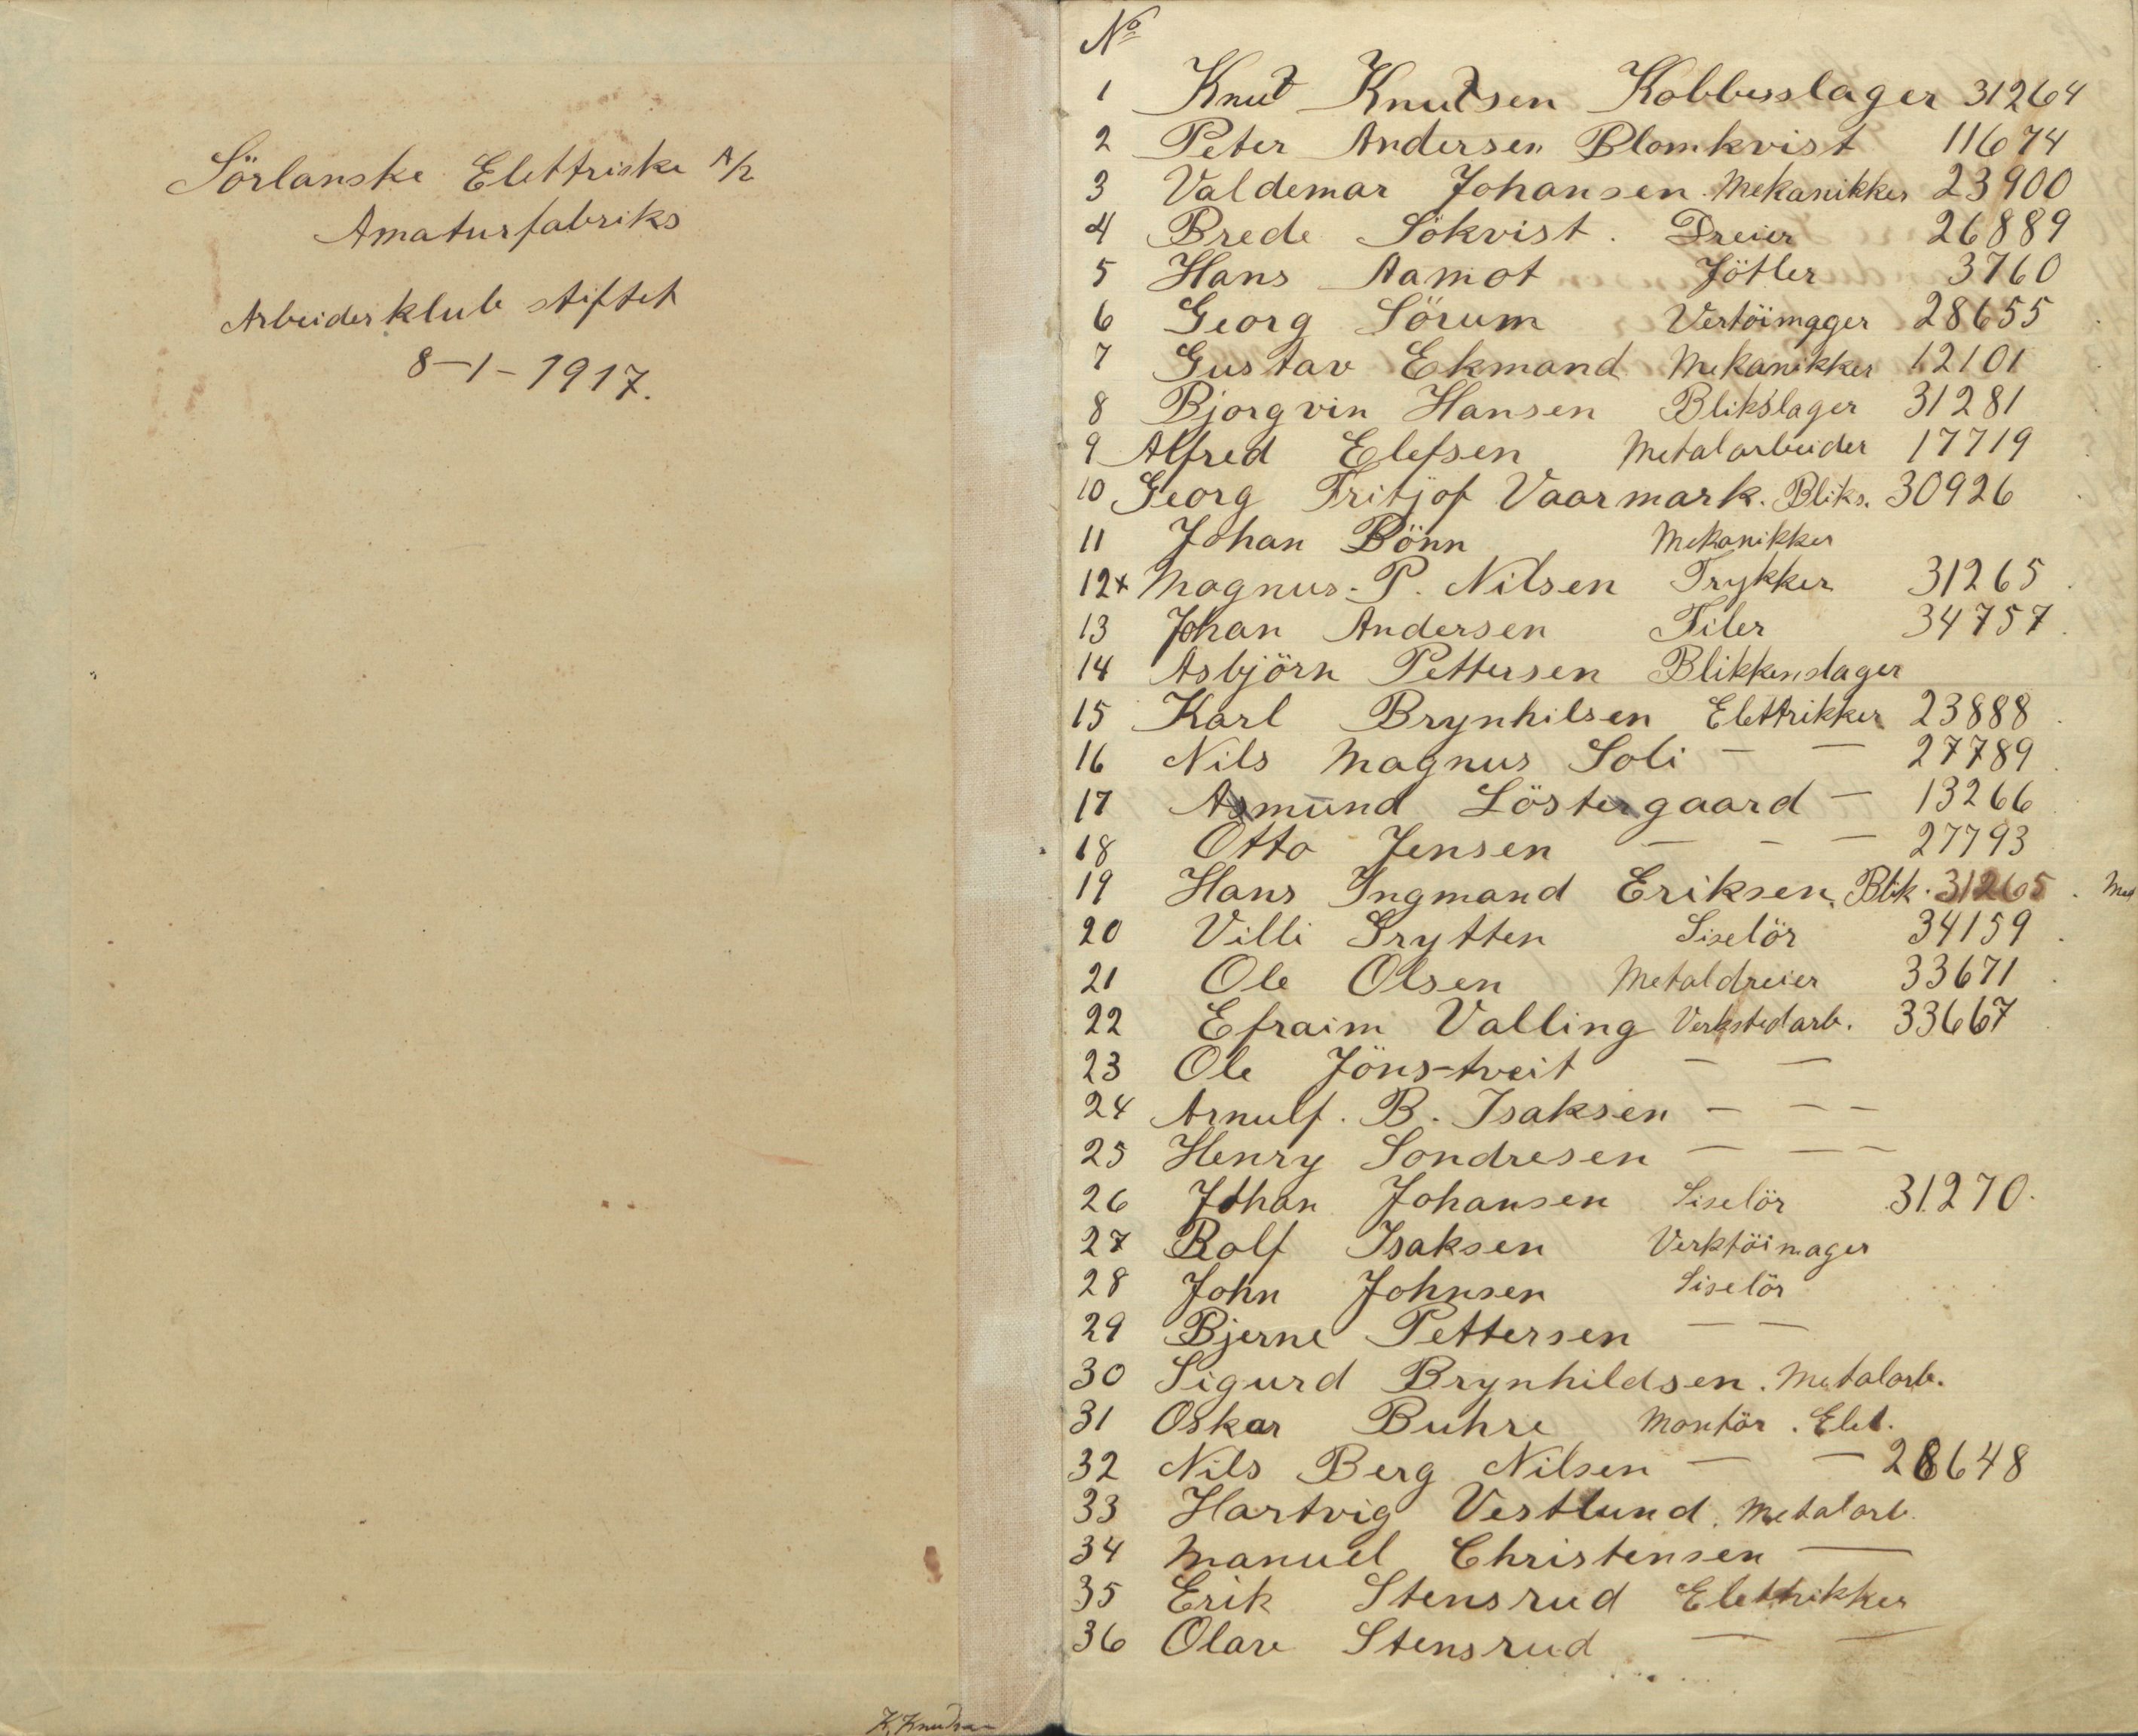 Sörlanske Elektriske A/S
Amaturfabriks
Arbeiderklub stiftet
8-1-1917.
K. Knudsen
No
1 Knut Knutsen Kobberslager 31264
2 Peter Andersen Blomkvist 11674
3 Valdemar Johansen. Mekanikker 23900
4 Brede Sökvist. Dreier 26889
5 Hans Aamot Jötler 3760
6 Georg Sörum Vertöimager 28655
7 Gustav Ekmand Mekanikker 12101
8 Bjorgvin Hansen Blikslager 31281
9 Alfred Elefsen Metalarbeider 17719
10 Georg Fritjof Vaarmark. Bliks. 30926
11 Johan Bönn Mekanikker
12x Magnus. P. Nilsen Trykker 31265
13 Johan Andersen Filer 34757
14 Asbjörn Pettersen Blikkenslager
15 Karl Brynhilsen Elektrikker 23888
16 Nils Magnus Soli — — 27789
17 Asmund Löstergaard — 13266
18 Otto Jensen — — — 27793
19 Hans Ingmand Eriksen. Blik. 31265
20 Villi Grytten Siselör 34159
21 Ole Olsen Metaldreier 33671
22 Efraim Valling Verkstedarb. 33667
23 Ole Jöns-tveit — —
24 Arnulf. B. Isaksen — — —
25 Henry Sondresen — — —
26 Johan Johansen Siselör 31270.
27 Rolf Isaksen Verktöimager
28 John Johnsen Siselör
29 Bjerne Pettersen — —
30 Sigurd Brynhildsen. Metalarb.
31 Oskar Buhre Montör. Elet.
32 Nils Berg Nilsen — — 28648
33 Hartvig Vestlund. Metalarb.
34 Manuel Christensen —
35 Erik Stensrud Elektrikker
36 Olav Stensrud — —